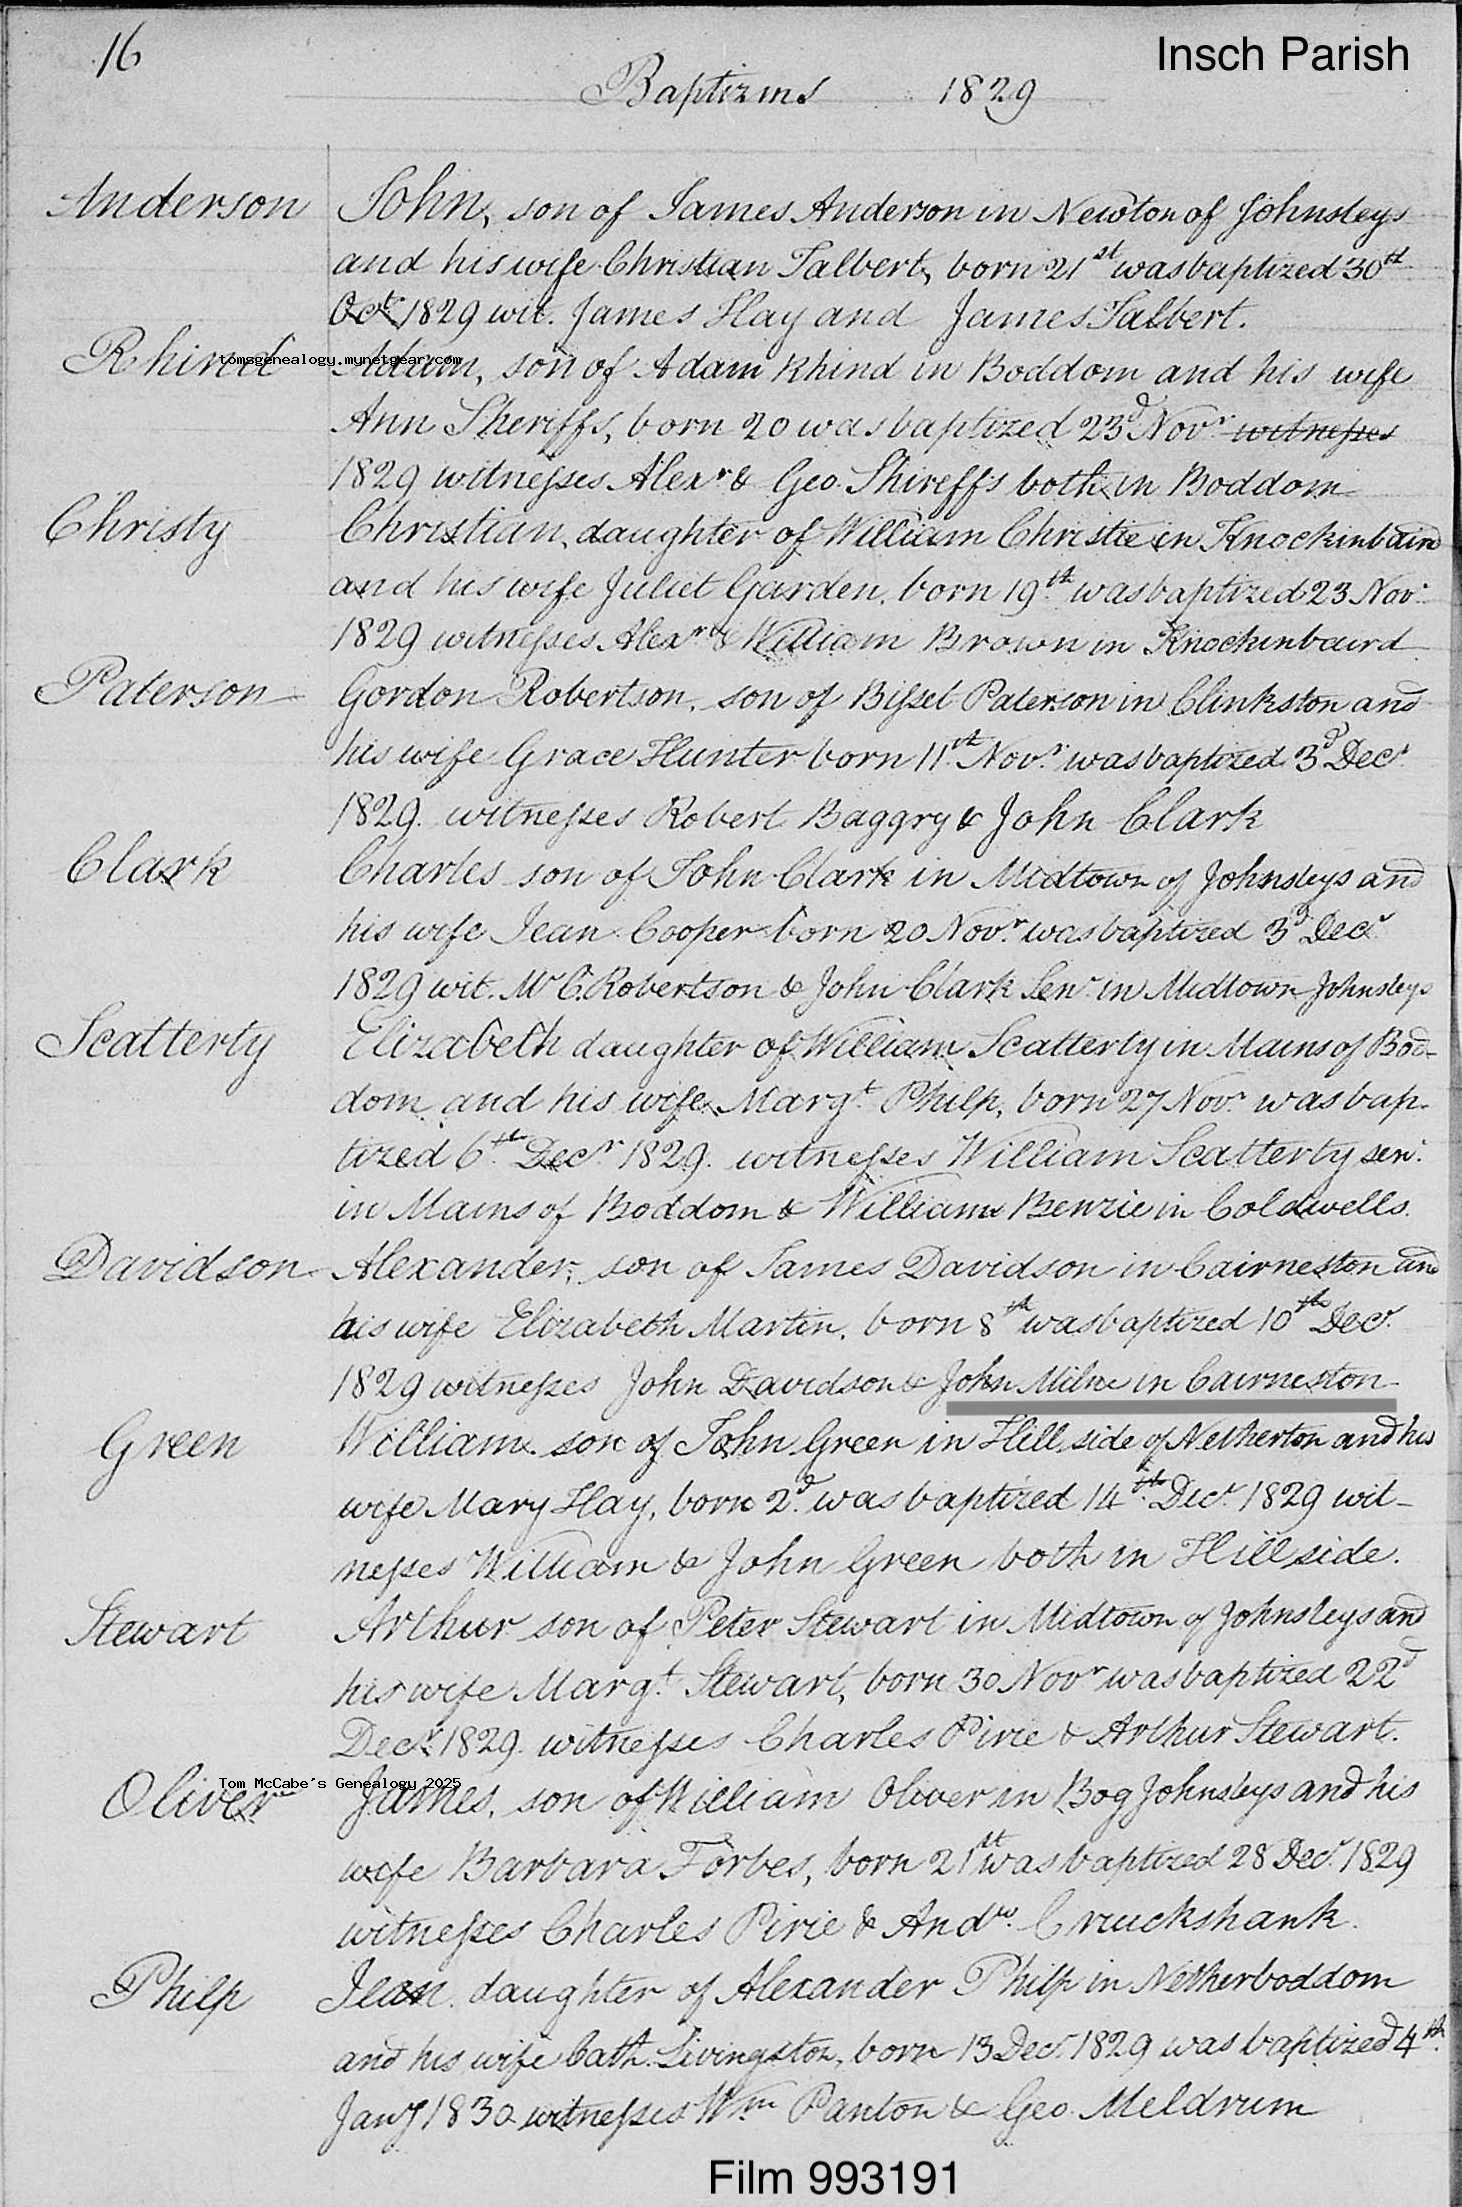 16
Insch Parish
Baptizms 1829
Anderson John, son of James Anderson in Newton of Johnsleys
and his wife Christian Talbert, born 21st was baptized 30th
Octr 1829 wit. James Hay and James Talbert.
tomsgenealogy.mynetgear.com
Rhind Adam, son of Adam Rhind in Boddom and his wife
Ann Sheriffs, born 20 was baptized 23d Novr witnesses
1829 witnesses Alexr & Geo. Shireffs both in Boddom
Christy Christian, daughter of William Christie in Knockinbaird
and his wife Juliet Garden, born 19th was baptized 23 Novr
1829 witnesses Alexr & William Brown in Knockinbaird
Paterson Gordon Robertson, son of Bisset Paterson in Clinkston and
his wife Grace Hunter born 11th Novr was baptized 3d Decr
1829. witnesses Robert Baggry & John Clark
Clark Charles son of John Clark in Midtown of Johnsleys and
his wife Jean Cooper born 20 Novr was baptized 3d Decr
1829 wit. Mr C. Robertson & John Clark Senr in Midtown Johnsleys
Scatterty Elizabeth daughter of William Scatterty in Mains of Bod-
dom and his wife Margt Philp, born 27 Novr was bap-
tized 6th Decr 1829. witnesses William Scatterty senr
in Mains of Boddom & William Benzie in Coldwells.
Davidson Alexander, son of James Davidson in Cairneston and
his wife Elizabeth Martin, born 8th was baptized 10th Decr
1829 witnesses John Davidson & John Milne in Cairneston
Green William son of John Green in Hillside of Netherton and his
wife Mary Hay, born 2d was baptized 14th Decr 1829 wit-
nesses William & John Green both in Hillside.
Stewart Arthur son of Peter Stewart in Midtown of Johnsleys and
his wife Margt Stewart, born 30 Novr was baptized 22d
Decr 1829. witnesses Charles Pirie & Arthur Stewart.
Tom McCabe's Genealogy 2025
Oliver James, son of William Oliver in Bog Johnsleys and his
wife Barbara Forbes, born 21st was baptized 28 Decr 1829
witnesses Charles Pirie & Andw. Cruckshank.
Philp Jean daughter of Alexander Philp in Netherboddom
and his wife Cath. Livingston, born 13 Decr 1829 was baptized 4th
Jany 1830 witnesses Wm Panton & Geo. Meldrum
Film 993191